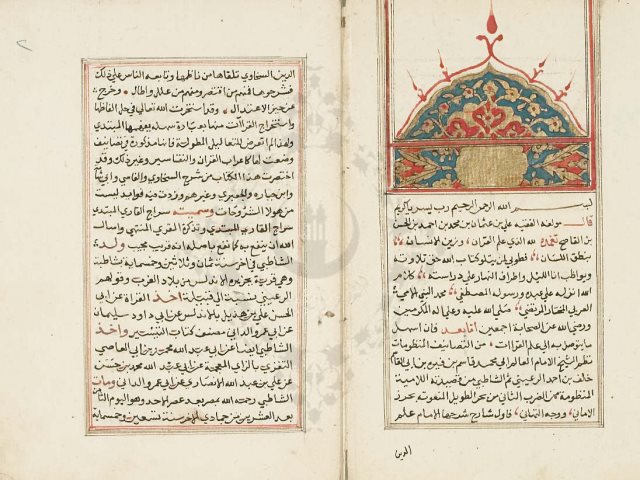 بسم الله الرحمن الرحيم رب يسر ياكريم
قال مولفه الفقيه علي بن عثمان بن محمد بن احمد بن الحسن
بن القاصح تغمده لله الذي علم القران وزين الانسان
بنطق اللسان فطوبى لمن يتلو كتاب الله حق تلاوته
ويواظب انا الليل واطراف النهار على دراسته وكلام
الله انزله على عبده ورسوله المصطفى محمد النبي الامي
العربي المختار المرتضى صلى الله عليه وعلى اله المكرمين
ورضي الله عن الصحابة اجمعين اما بعد فان اسهل
ما يتوصل به الى علم القراات من التصانيف المنظومات
نظم الشيخ الامام العالم ابي محمد قاسم بن فيره بن ابي القاسم
خلف بن احمد الرعيني ثم الشاطبي من قصيدته اللامية
المنظومة من الضرب الثاني من بحر الطويل المنعوته بحرز
الاماني ووجه التهاني فاول شارح شرحها الامام علم
الدين
الدين السخاوي تلقاها من ناظمها وتابعه الناس على ذلك
فشرحوها فمنهم من اقتصر ومنهم من علل واطال وخرج
عن حيز الاعتدال وقد استخرت الله تعالى في حل الفاظها
واستخراج القراات منها بعبارة سهله يفهمها المبتدي
ولهذا لم اتعرض للتعاليل المطولة فانها مذكورة في تصانيف
وضعت لها كاعراب القران والتفاسير وغير ذلك وقد
اختصرت هذا الكتاب من شرح السخاوي والفاسي وابي شامة
وابن جباره والجعبري وغيرهم وزدت فيه فوايد ليست
من هولا الشروحات وسميته سراج القاري المبتدي
وتذكرة المقري المنتهي واسال
الله ان ينفع به كما نفع باصله انه قريب مجيب ولد
الشاطبي في اخر سنة ثمان وثلاثين وخمسماية بشاطبة
وهي قرية بجزيرة الاندلس من بلاد الغرب وقولهم
الرعيني نسبة الى قبيلة اخذ القراة عن ابي
الحسن علي بن هذيل بالاندلس عن ابي داود سليمان
عن ابي عمرو الداني مصنف كتاب التيسير واخذ
الشاطبي ايضا عن ابي عبد الله محمد بن ابي العاصي
النفزي بالزاي المعجمة عن ابي عبد الله محمد بن حسن
عن علي بن عبد الله الانصاري عن ابي عمرو الداني ومات
الشاطبي رحمه الله بمصر بعد عصر الاحد وهو اليوم الثامن
بعد العشرين من جمادي الاخر سنة تسعين وخمسماية